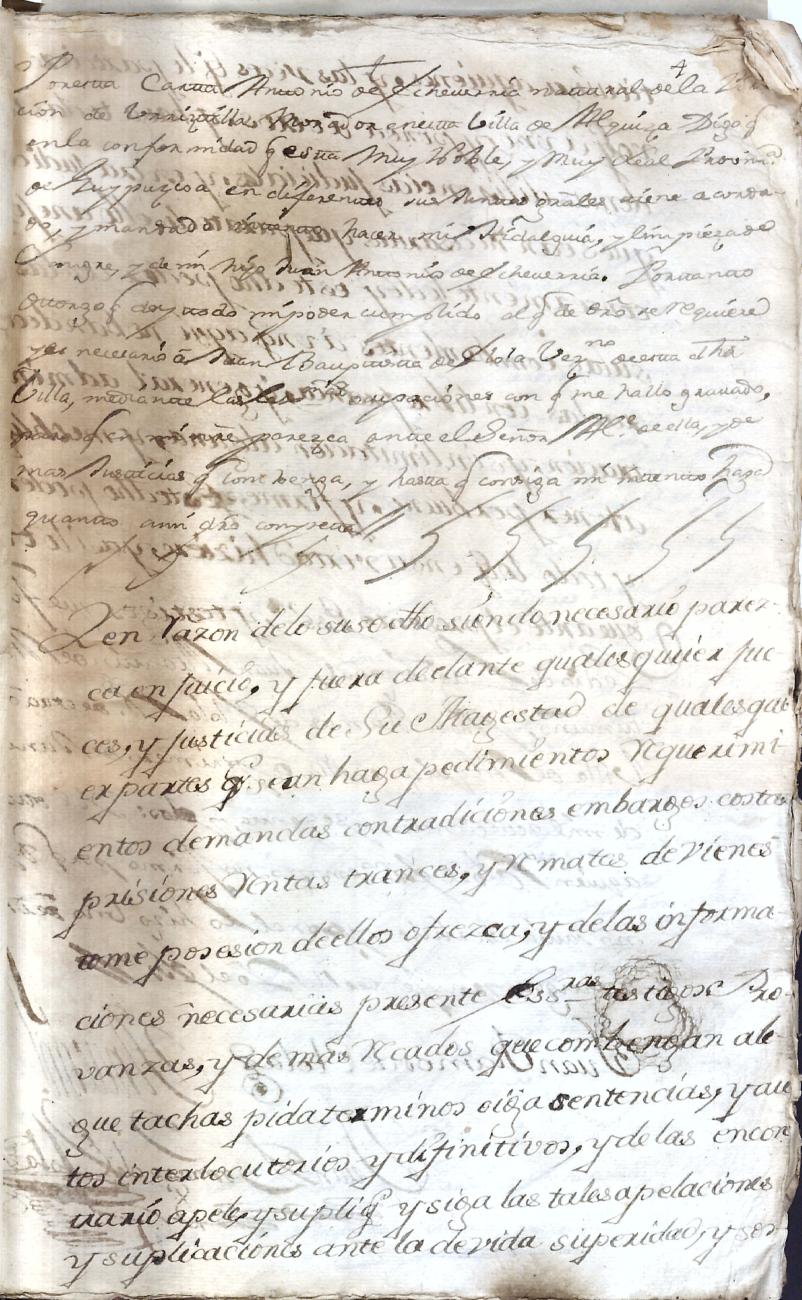 4
Por esta Carta Antonio de Echeverria natural de la
cion de Urrizttilla, Morador en esta Villa de Alquiza Digo q
en la conformidad q esta Muy Noble, y Muy Leal Provin.ª
de Guypuzcoa en diferentes sus Juntas grãles tiene acorda-
do, y mandado hacer mi Hidalguia, y limpieza de
Sangre, y de mi hijo Juan Antonio de Echeverria. Por tanto
Otorgo q doy todo mi poder cumplido el q de dro se requiere
y es necesario à Juan Bauptista de Vez.no de esta dha
Villa, mediante las ocupaciones con q me hallo gravado,
para q en mi nre parezca ante el Señor Al.e de ella, y de
mas Justicias q combenga, y hasta q consiga mi intento haga
quanto a mi dro competa
Y en razon de lo suso dho siendo necesario parez-
ca en juicio, y fuera de el ante qualesquier jue-
ces, y justicias de Su Magestad de qualesqui
er partes q sean haga pedimientos requerimi-
entos demandas contradiciones embargos costas
prisiones ventas trances, y remates de vienes
tome posesion de ellos ofrezca, y de las informa-
ciones necesarias presente Ess.ras testigos Pro-
vanzas, y demas recados que combengan ale
gue tachas pida terminos oiga sentencias, y au
tos interlocutorios y difinitivos, y de las encon
trario apele, y supliq y siga las tales apelaciones
y suplicaciones ante la devida superidad, y ser